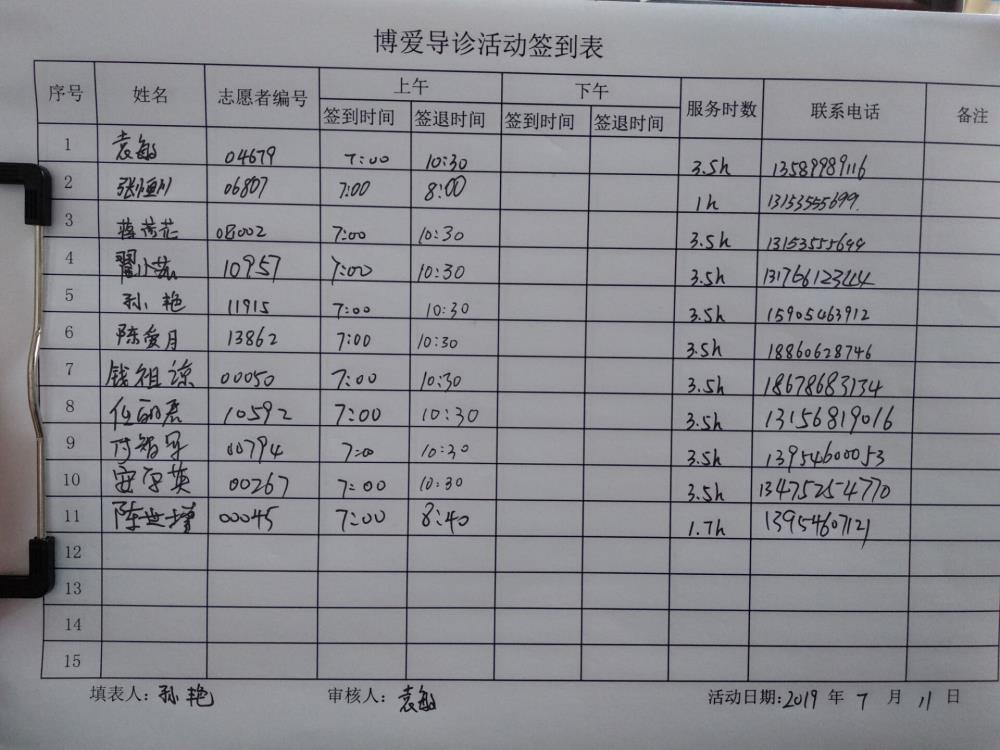 博爱导诊活动签到表
序号 姓名 志愿者编号 上午 下午 服务时数 联系电话 备注
签到时间 签退时间 签到时间 签退时间
1 袁敏 04679 7:00 10:30 3.5h 13589989116
2 张恒川 06807 7:00 8:00 1h 13153555699
3 08002 7:00 10:30 3.5h 13153555694
4 翟小茹 10957 7:00 10:30 3.5h 13176612344
5 孙艳 11915 7:00 10:30 3.5h 15905463912
6 陈爱月 13862 7:00 10:30 3.5h 18860628746
7 钱祖谅 00050 7:00 10:30 3.5h 18678683134
8 任丽君 10592 7:00 10:30 3.5h 13156819016
9 付智军 00794 7:00 10:30 3.5h 13954600053
10 安原英 00267 7:00 10:30 3.5h 13475254770
11 陈世增 00045 7:00 8:40 1.7h 13954607121
12
13
14
15
填表人:孙艳 审核人:袁敏 活动日期:2019 年 7 月 11 日